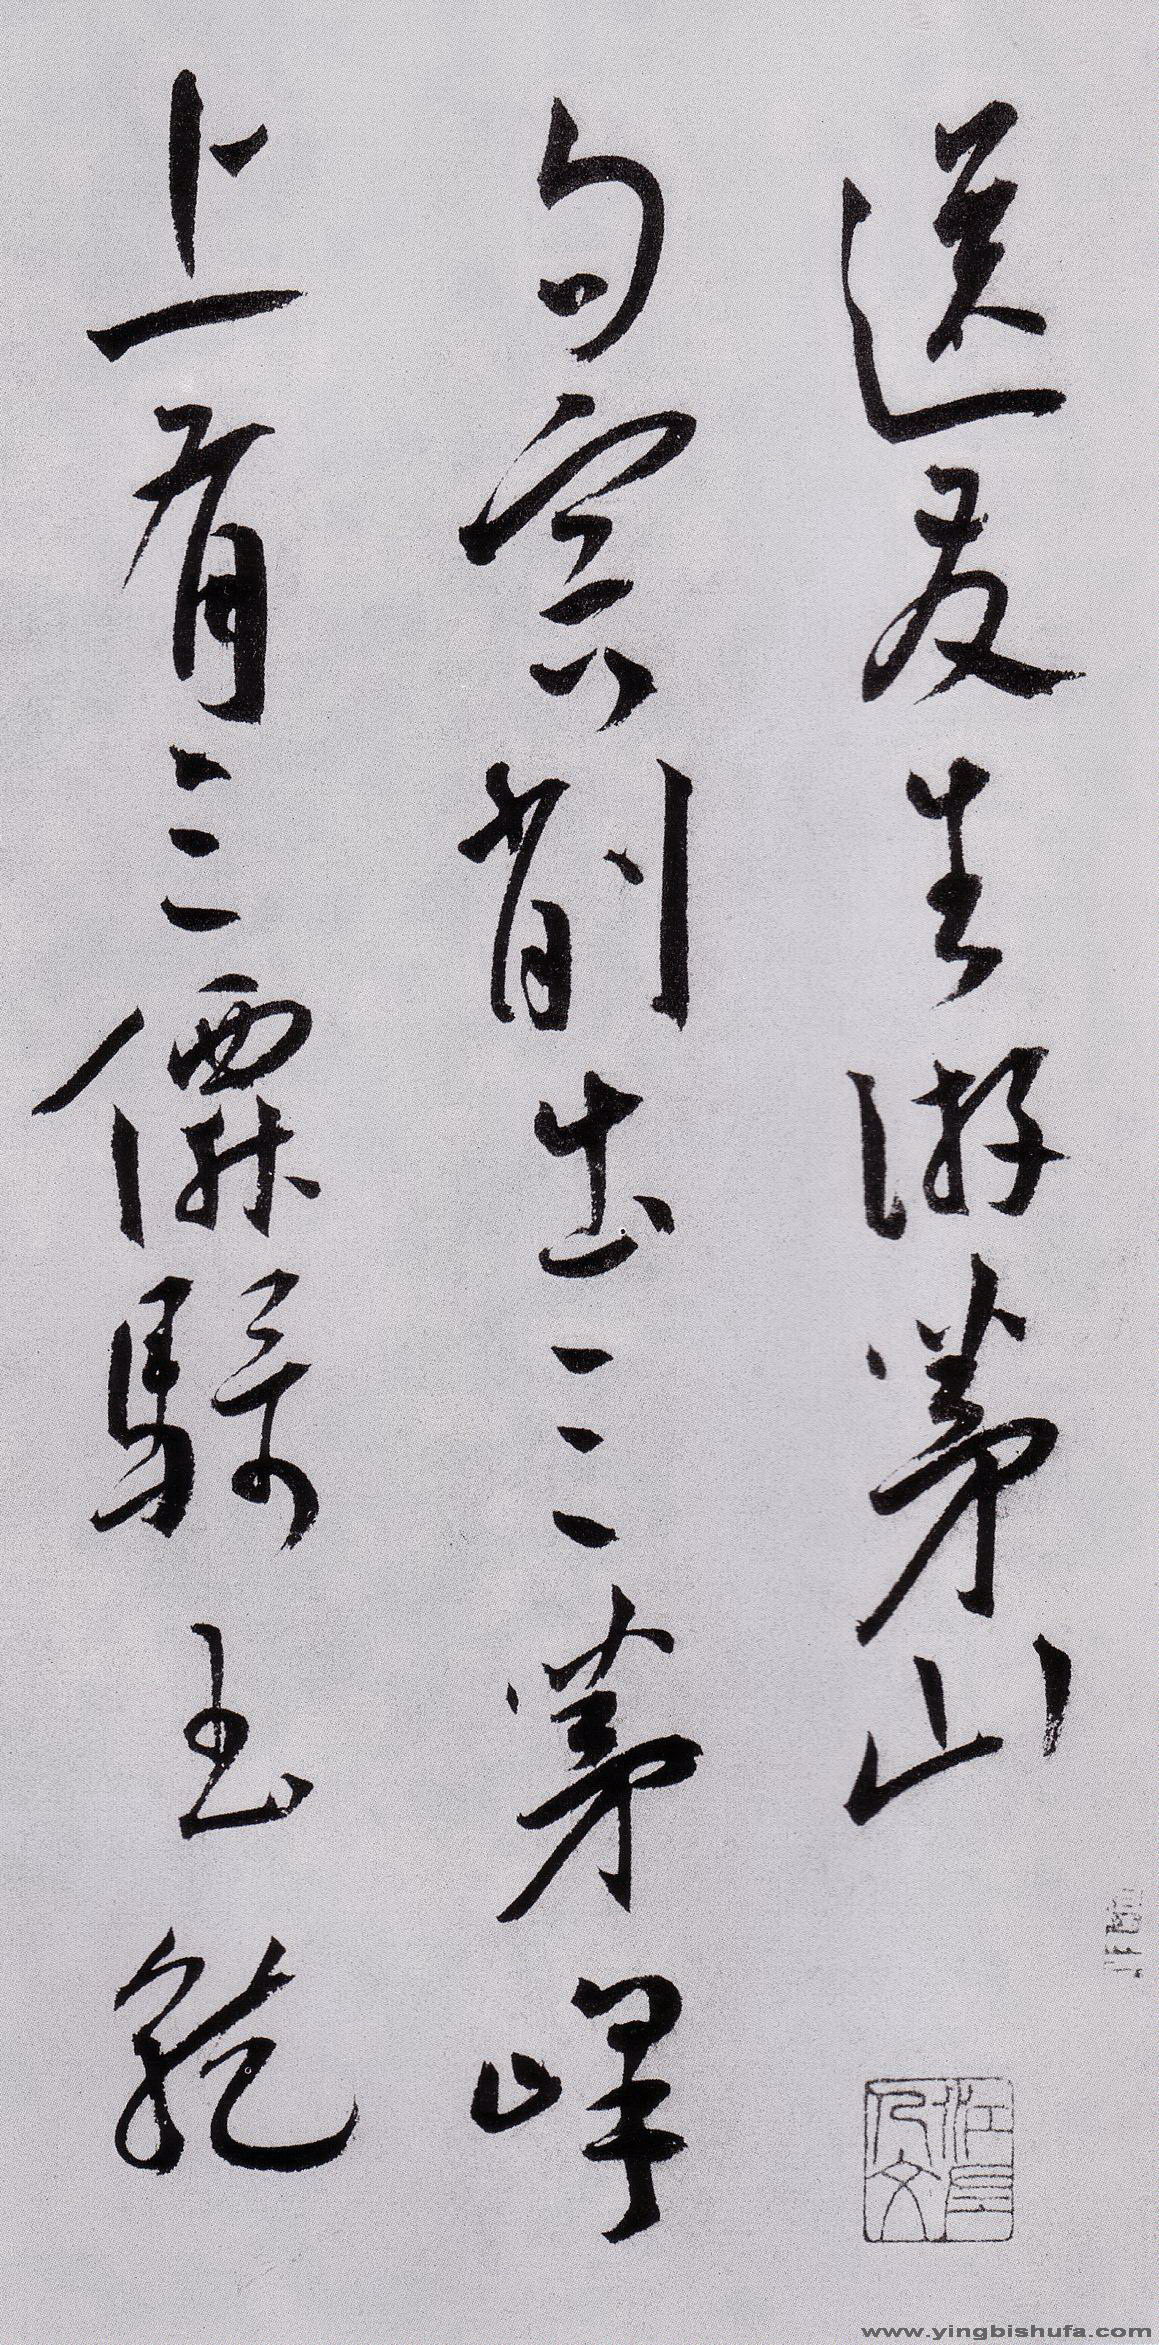 送友生游茅山
句容削出三茅峰
上有三僊騎玉龍
www.yingbishufa.com